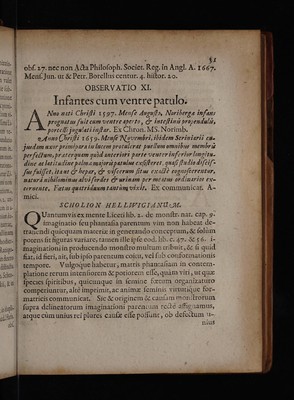 51
obs. 17. nec non Acta Philosoph. Societ. Reg. in Angl. A. 1667.
Mens. Jun. ut & Petr. Borellus centur. 4. histor. 20.
OBSERVATIO XI.
Infantes cum ventre patulo.
ANno nati Christi 1597. Mense Augusto, Noriberga infans
prognatus fuit cum ventre aperto, & intestinis propendulis,
porcelli jugulati instar. Ex Chron. MS. Norimb.
Anno Christi 1659. Mense Novembri, ibidem Scriniarii cu-
jusdam uxor primipara in lucem protulerat puellum omnibus membris
perfectum, præterquam quod anteriori parte venter inferior longitu-
dine ac latitudine palmæ majoris patulus exstiteret, quasi studio dissis-
sus fuisset, ita ut & hepar, & viscerum situs exactè cognosceretur,
naturâ nihilominus alvi sordes & urinam per meatus ordinarios ex-
cernente. Fœtus quatriduum tantùm vixit. Ex communicat. A-
mici.
SCHOLION HELLWIGIANUM.
QUantumvis ex mente Liceti lib. 2. de monstr. nat. cap. 9.
imaginatio seu phantasia parentum vim non habeat de-
trahendi quicquam materiæ in generando conceptum, & solùm
possit ut figuras variare, tamen
imaginationi in producendo monstro multum tribuit, & si quid
fiat, id fieri, ait, sub ipso parentum coitu, vel sub conformationis
tempore. Vulgoque habetur, matris phantasiam in contem-
platione rerum intensiorem & potiorem esse, quàm viri, ut quæ
species spiritibus, quicunque in semine fœtum organizaturo
comperiuntur, altè imprimit, ac animæ seminis
matricis communicat. Sic & originem & causam monstrorum
supra delineatorum imaginationi parentum rectè assignamus,
atque cùm unius rei plures causæ esse possint, ob defectum u-
nius